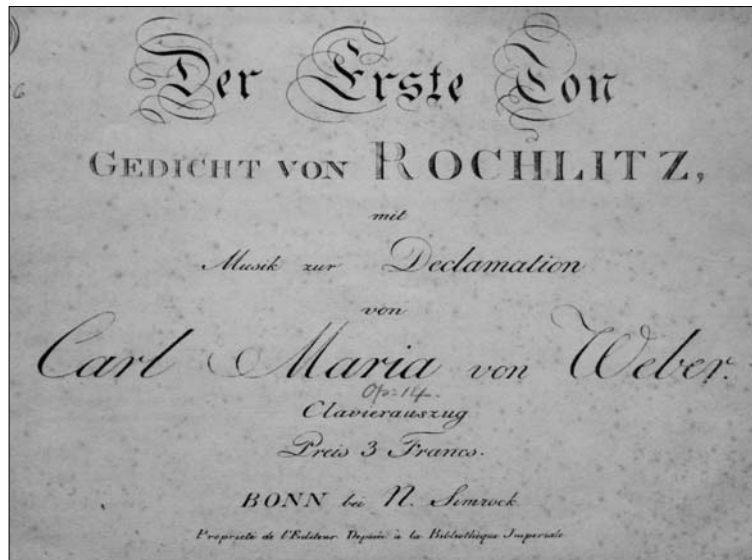 6
Der Erste Ton
GEDICHT VON ROCHLITZ,
mit
Musik zur Declamation
von
Carl Maria von Weber.
Op: 14.
Clavierauszug
Preis 3 Francs.
BONN bei N. Simrock.
Propriété de l'Editeur Deposée à la Bibliothèque Imperiale